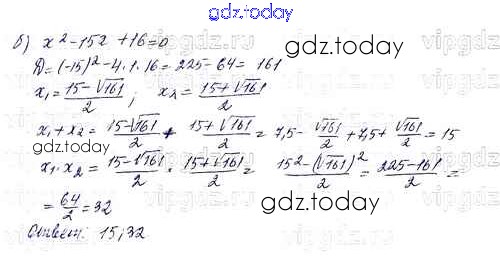 gdz.today
б) x² - 15x + 16 = 0
gdz.today
D = (-15)² - 4·1·16 = 225 - 64 = 161
x₁ = (15-√161)/2 ; x₂ = (15+√161)/2
x₁ + x₂ = (15-√161)/2 + (15+√161)/2 = 7,5 - √161/2 + 7,5 + √161/2 = 15
gdz.today
x₁ · x₂ = (15-√161)/2 · (15+√161)/2 = (15² - (√161)²)/2 = (225-161)/2 =
= 64/2 = 32
gdz.today
Ответ: 15; 32